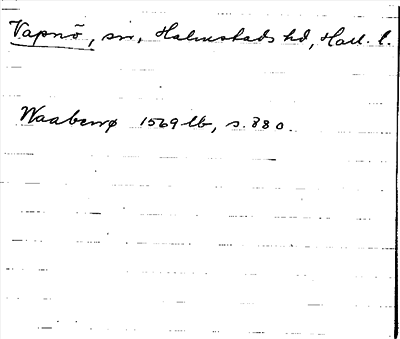 Vapnö, sn, Halmstads hd, Hall. l.
Waabnø 1569 lb, s. 380.